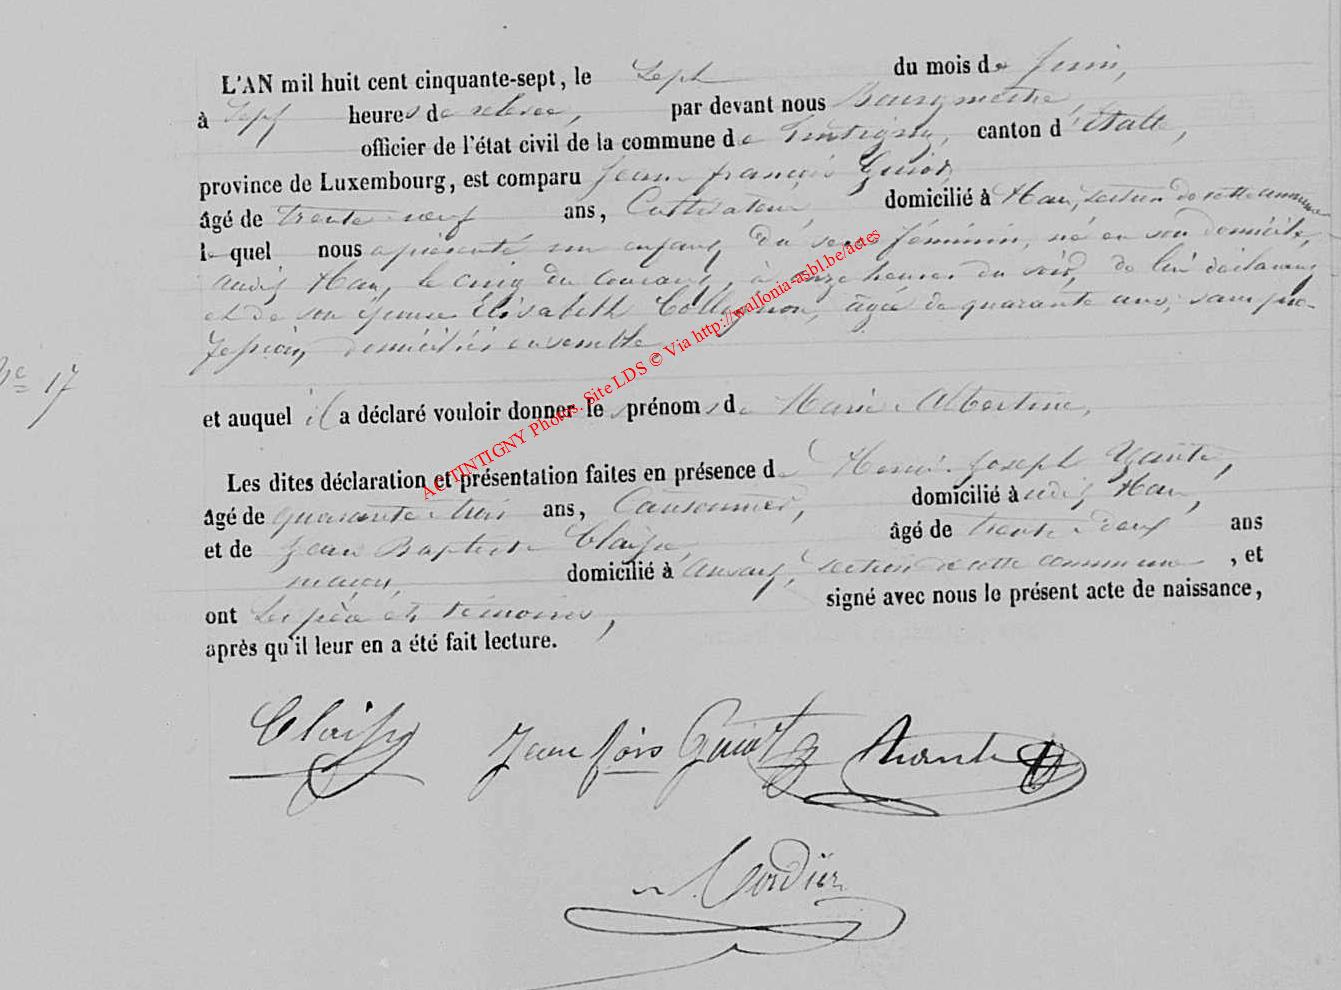 L'AN mil huit cent cinquante-sept, le Sept du mois de Juin,
à Sept heures de relevée, par devant nous Bourgmestre,
officier de l'état civil de la commune de Tintigny, canton d'étalle,
province de Luxembourg, est comparu Jean françois Guiot,
âgé de trente-neuf ans, Cultivateur, domicilié à Han, section de cette commune
le quel nous a présenté un enfant du sexe féminin, né en son domicile,
audit Han, le cinq du courant, à onze heures du soir, de lui déclarant
et de son épouse Elisabeth Collignon, âgée de quarante ans, sans pro-
fession, domiciliés ensemble
Nº 17
et auquel il a déclaré vouloir donner les prénoms de Marie Albertine,
Les dites déclaration et présentation faites en présence de Henri-Joseph
âgé de quarante-trois ans, Cantonnier, domicilié à audit Han,
et de Jean Baptiste Claisse, âgé de trente-deux ans
maçon, domicilié à Ansart, section de cette commune, et
ont Les père et témoins, signé avec nous le présent acte de naissance,
après qu'il leur en a été fait lecture.
Claisse Jean fçois Guiot
Cordier
ACTINTIGNY Photos. Site LDS © Via http://wallonia-asbl.be/actes